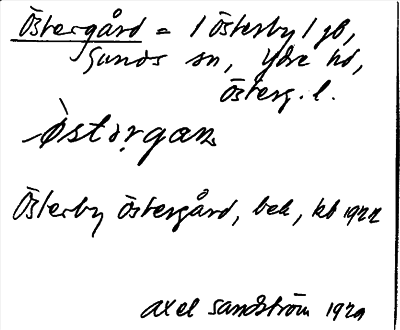 Östergård = 1 Österby 1 gd,
Sunds sn, Ydre hd,
Österg. l.
Östərgan
Österby Östergård, bek, kb 1922
Axel Sandström 1929